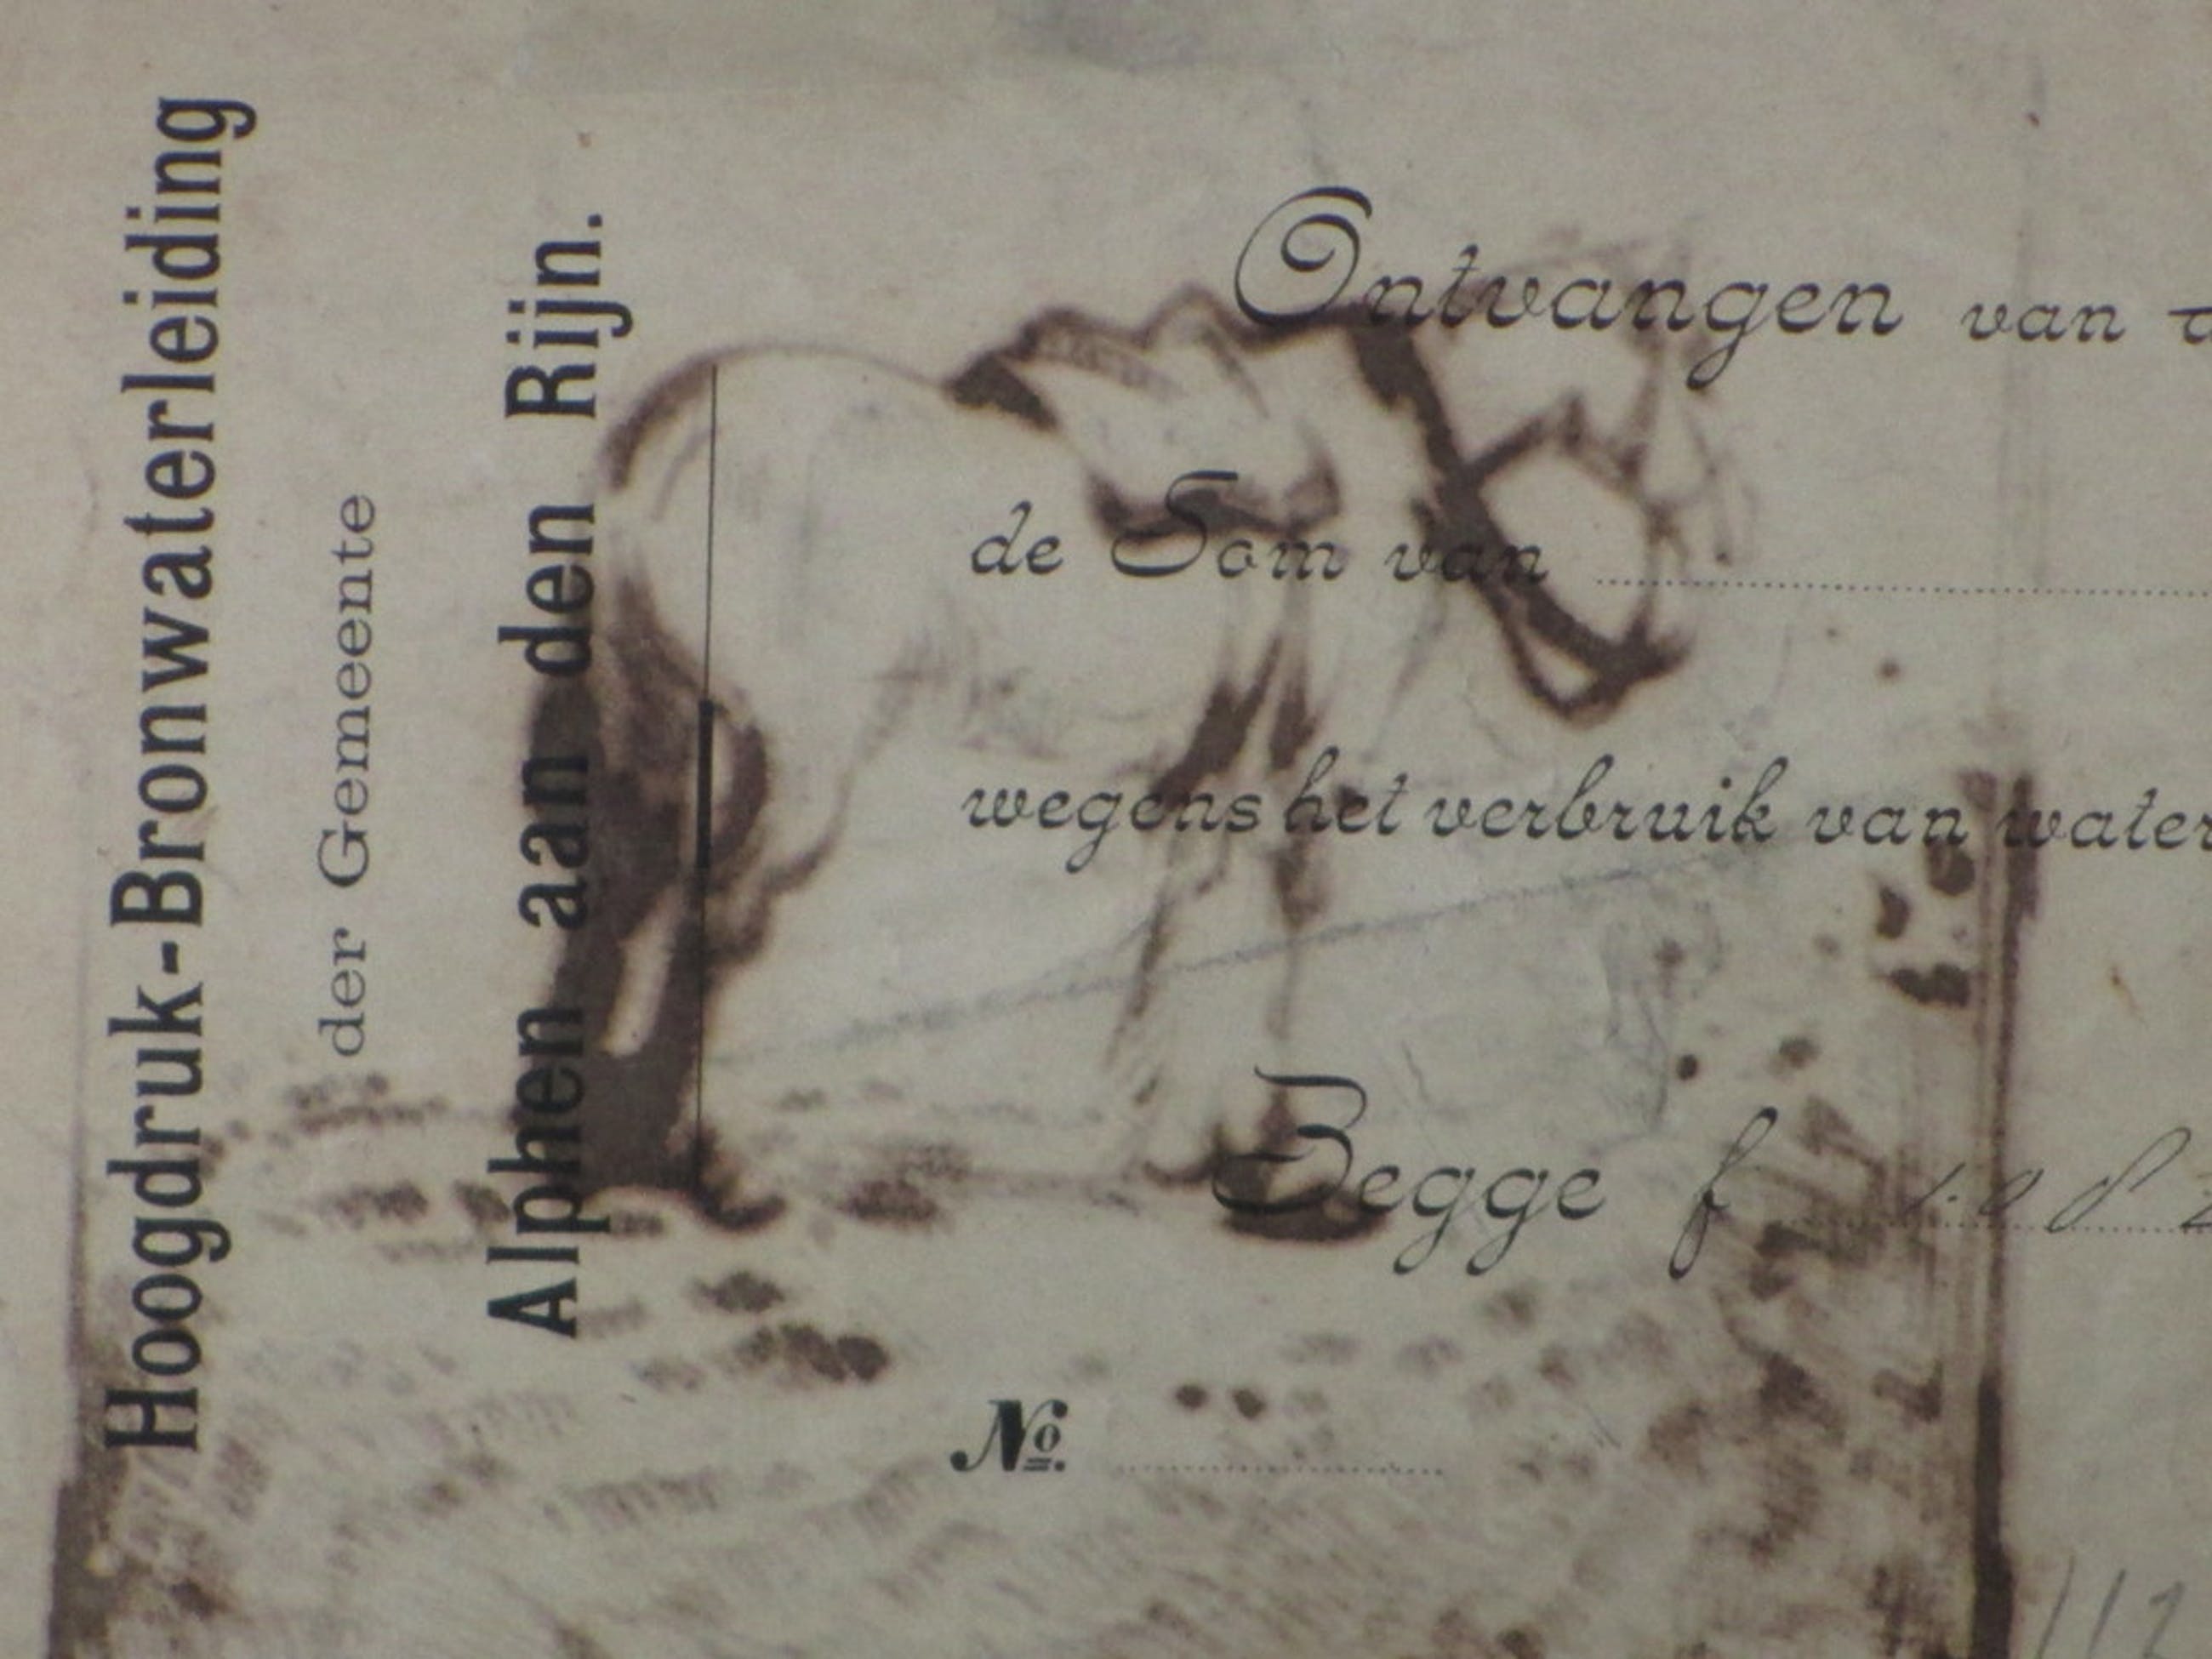 Hoogdruk-Bronwaterleiding
der Gemeente
Alphen aan den Rijn.
Ontvangen van
de Som van
wegens het verbruik van water
Zegge f
No.